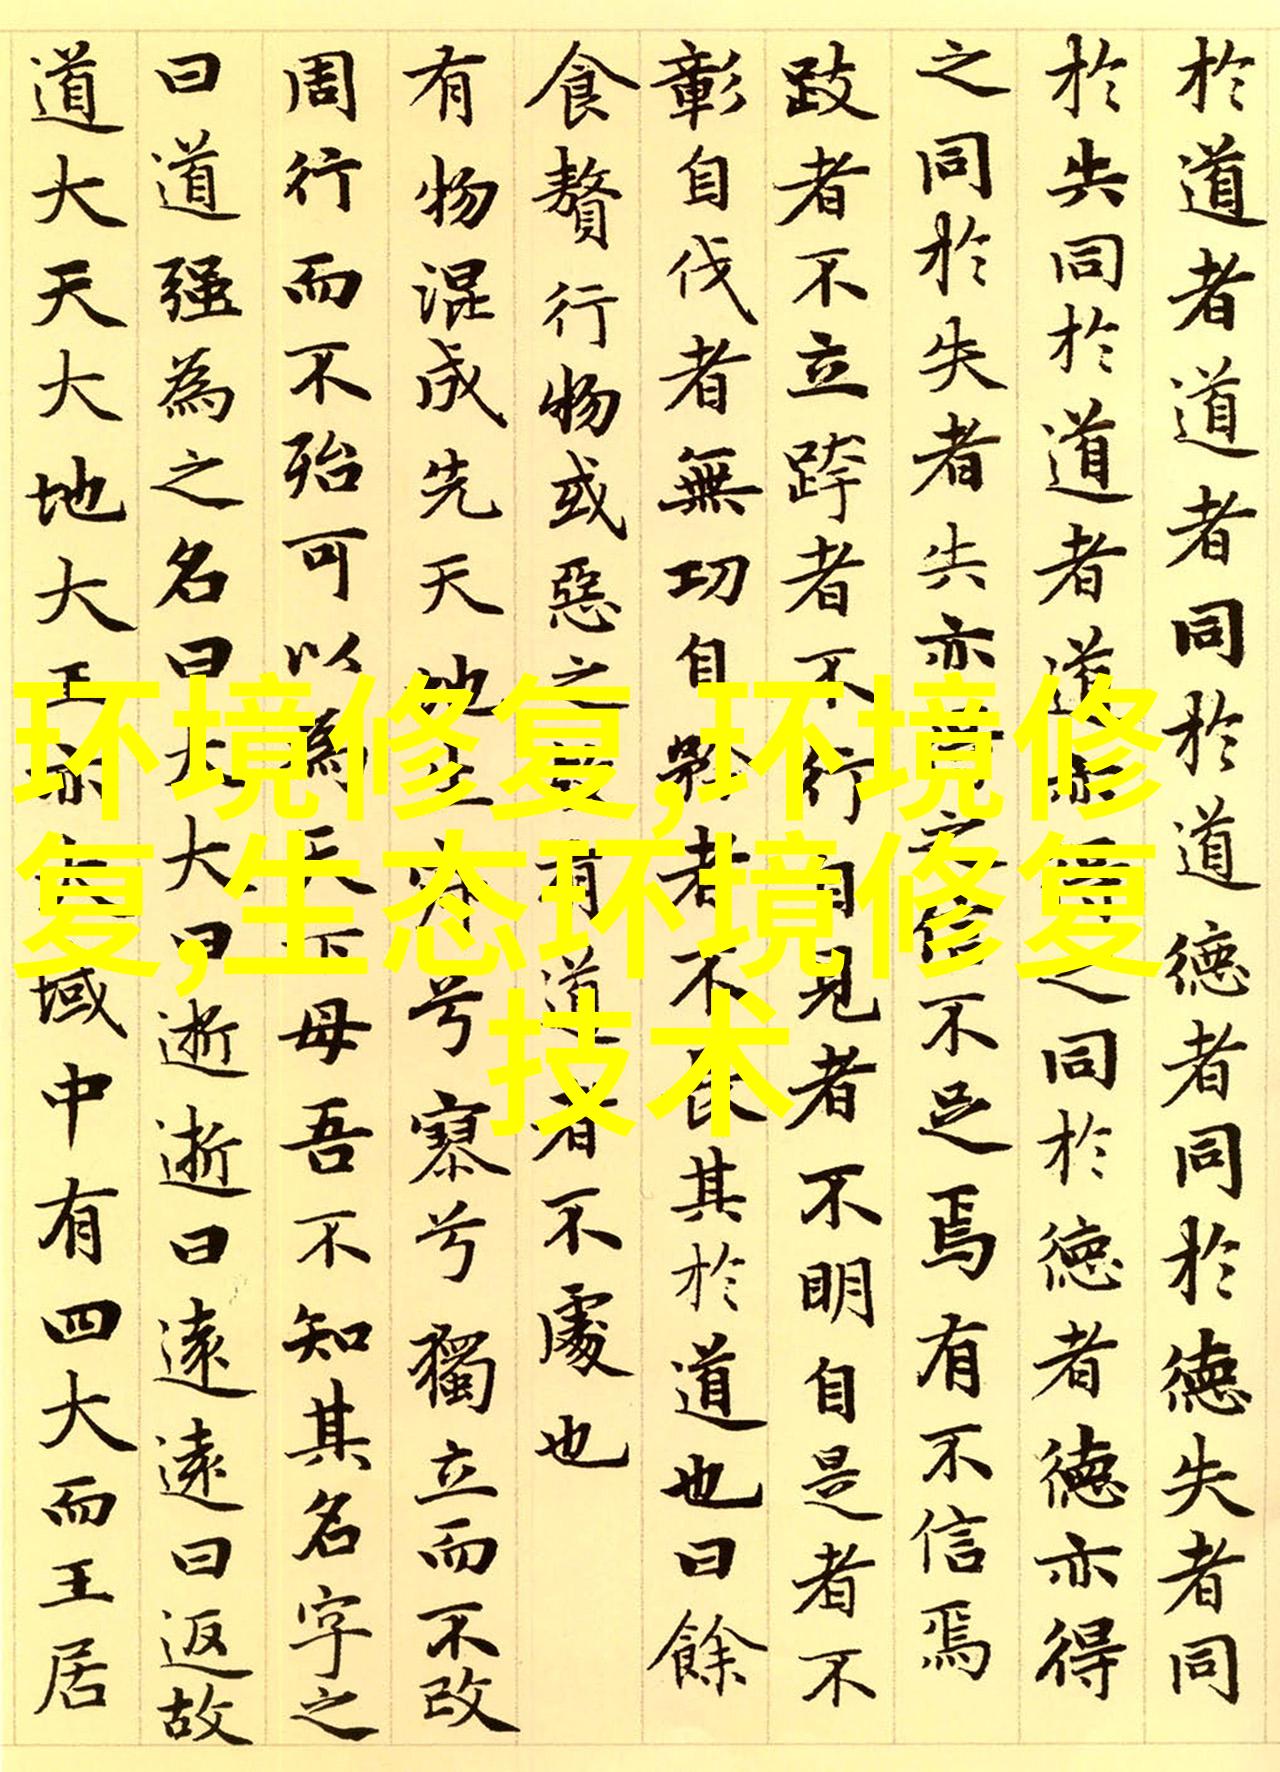 於道者道者同於道德者同於德失者同
於失同於道者道亦得之同於德者德亦得
之同於失者失亦之信不足焉有不信焉
跂者不立跨者不行自見者不明自是者不
彰自伐者無功自矜者不長其於道也曰餘
食贅行物或惡之故有道者不處也
有物混成先天地生寂兮寥兮獨立而不改
周行而不殆可以為天下母吾不知其名字之
曰道强為之名曰大大曰逝逝曰遠遠曰返故
道大天大地大王亦大域中有四大而王居
环境修复,环境修
复,生态环境修复
技术